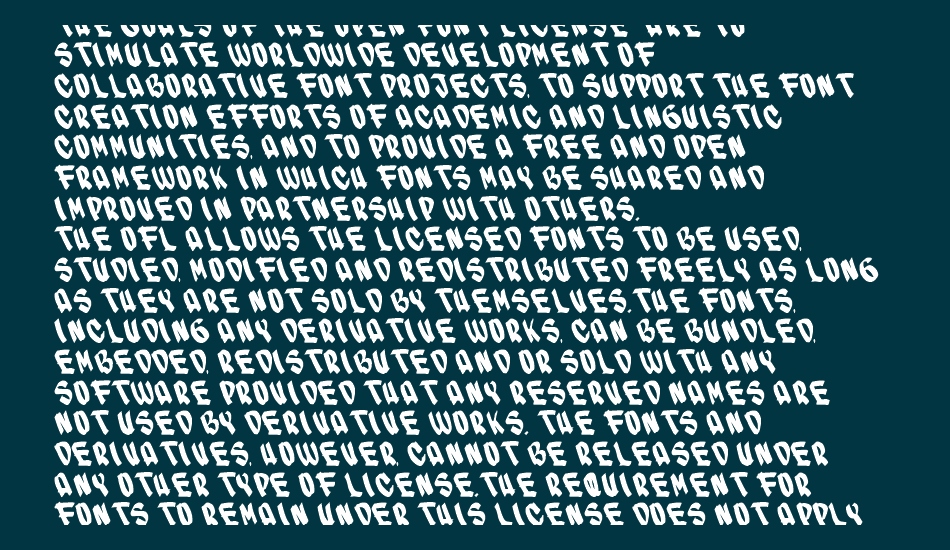 THE GOALS OF THE OPEN FONT LICENSE ARE TO
STIMULATE WORLDWIDE DEVELOPMENT OF
COLLABORATIVE FONT PROJECTS, TO SUPPORT THE FONT
CREATION EFFORTS OF ACADEMIC AND LINGUISTIC
COMMUNITIES, AND TO PROVIDE A FREE AND OPEN
FRAMEWORK IN WHICH FONTS MAY BE SHARED AND
IMPROVED IN PARTNERSHIP WITH OTHERS.
THE OFL ALLOWS THE LICENSED FONTS TO BE USED,
STUDIED, MODIFIED AND REDISTRIBUTED FREELY AS LONG
AS THEY ARE NOT SOLD BY THEMSELVES.THE FONTS,
INCLUDING ANY DERIVATIVE WORKS, CAN BE BUNDLED,
EMBEDDED, REDISTRIBUTED AND OR SOLD WITH ANY
SOFTWARE PROVIDED THAT ANY RESERVED NAMES ARE
NOT USED BY DERIVATIVE WORKS. THE FONTS AND
DERIVATIVES, HOWEVER, CANNOT BE RELEASED UNDER
ANY OTHER TYPE OF LICENSE.THE REQUIREMENT FOR
FONTS TO REMAIN UNDER THIS LICENSE DOES NOT APPLY